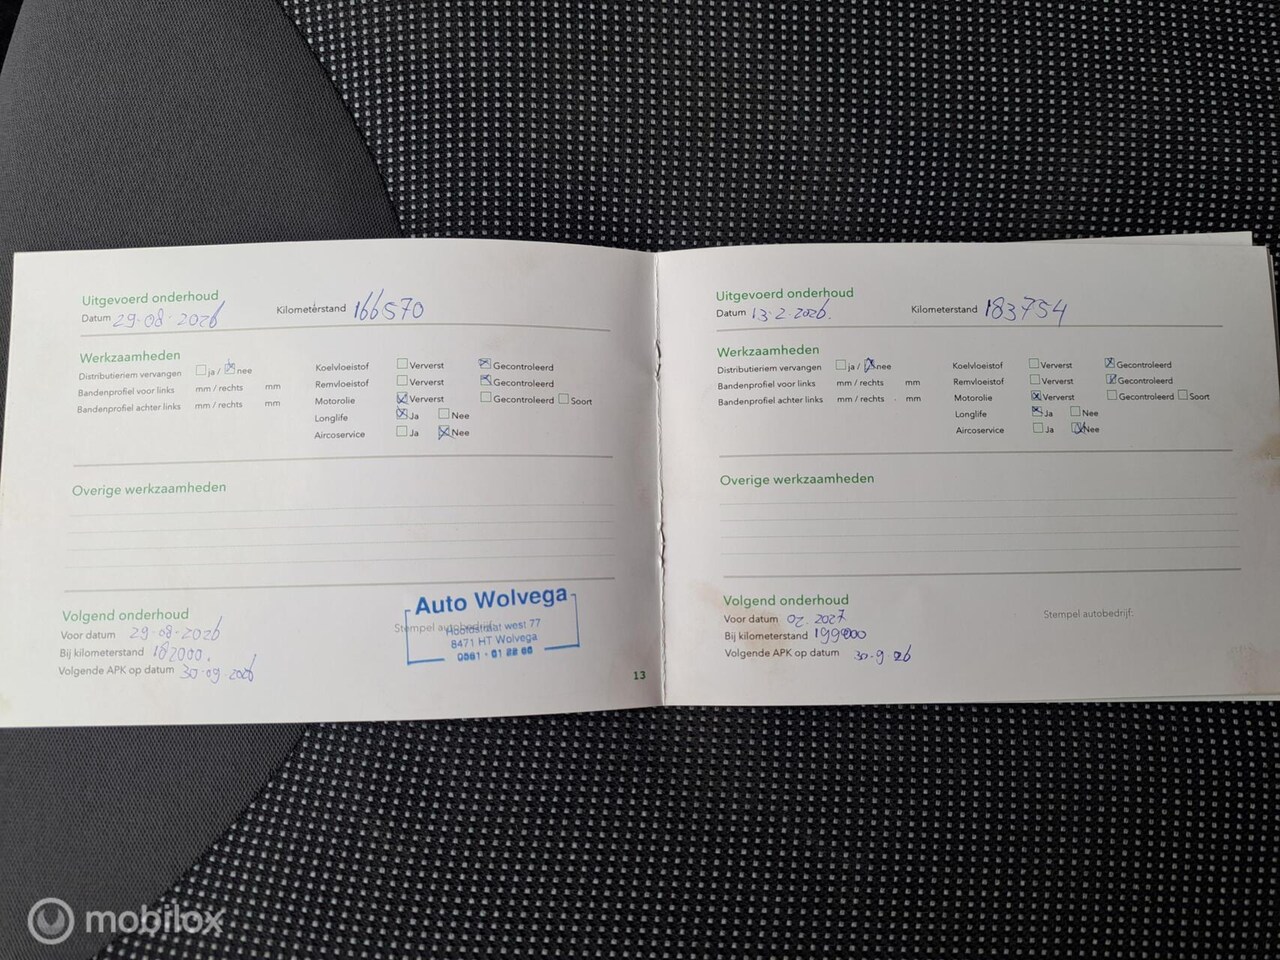 Uitgevoerd onderhoud
Datum 29-08-2026 Kilometerstand 166570
Werkzaamheden
Distributieriem vervangen ja / nee
Bandenprofiel voor links mm / rechts mm
Bandenprofiel achter links mm / rechts mm
Koelvloeistof Ververst Gecontroleerd
Remvloeistof Ververst Gecontroleerd
Motorolie Ververst Gecontroleerd Soort
Longlife Ja Nee
Aircoservice Ja Nee
Overige werkzaamheden
Volgend onderhoud
Voor datum 29-08-2026
Bij kilometerstand 182000.
Volgende APK op datum 30-09-2026
Stempel autobedrijf:
Auto Wolvega
Hoofdstraat west 77
8471 HT Wolvega
0561 - 61 28 66
13
Uitgevoerd onderhoud
Datum 13-2-2026. Kilometerstand 183754
Werkzaamheden
Distributieriem vervangen ja / nee
Bandenprofiel voor links mm / rechts mm
Bandenprofiel achter links mm / rechts mm
Koelvloeistof Ververst Gecontroleerd
Remvloeistof Ververst Gecontroleerd
Motorolie Ververst Gecontroleerd Soort
Longlife Ja Nee
Aircoservice Ja Nee
Overige werkzaamheden
Volgend onderhoud
Voor datum 02-2027
Bij kilometerstand 199000
Volgende APK op datum 30-9-26
Stempel autobedrijf:
mobilox